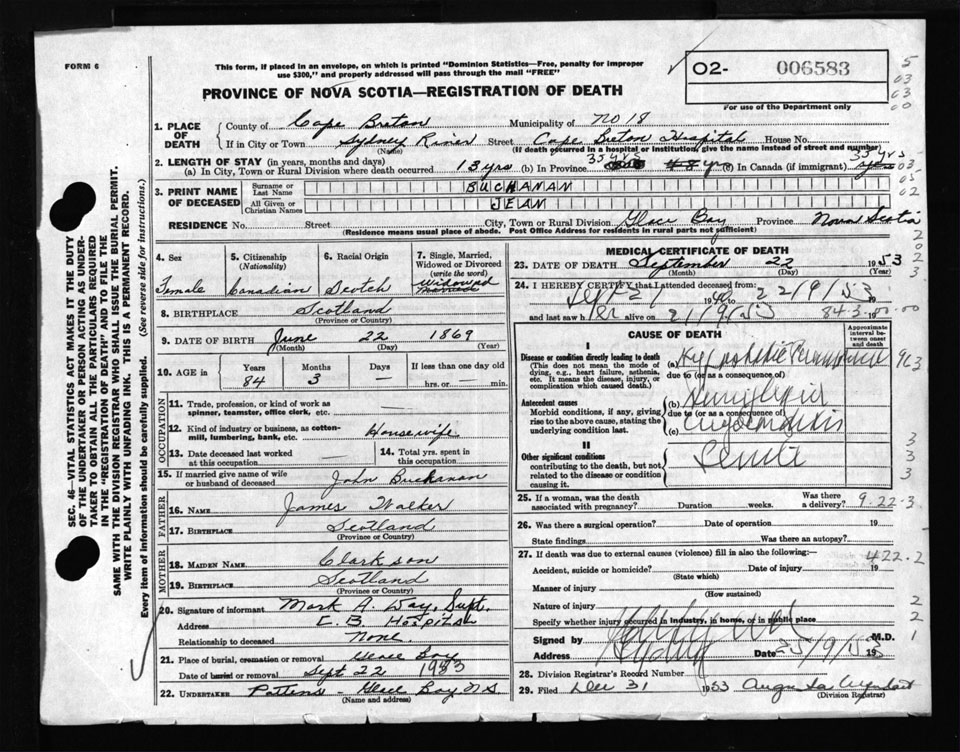 FORM 6
This form, if placed in an envelope, on which is printed "Dominion Statistics—Free, penalty for improper
use $300," and properly addressed will pass through the mail "FREE"
O2- 006583
For use of the Department only
PROVINCE OF NOVA SCOTIA—REGISTRATION OF DEATH
1. PLACE OF DEATH
County of Cape Breton Municipality of No 18
If in City or Town Sydney River Street Cape Breton Hospital House No.
(Name) (If death occurred in a hospital or institution, give the name instead of street and number)
2. LENGTH OF STAY (in years, months and days)
(a) In City, Town or Rural Division where death occurred 13 yrs (b) In Province 35 yrs (c) In Canada (if immigrant) 35 yrs
3. PRINT NAME OF DECEASED
Surname or Last Name BUCHANAN
All Given or Christian Names JEAN
RESIDENCE No. Street City, Town or Rural Division Glace Bay Province Nova Scotia
(Residence means usual place of abode. Post Office Address for residents in rural parts not sufficient)
4. Sex Female
5. Citizenship (Nationality) Canadian
6. Racial Origin Scotch
7. Single, Married, Widowed or Divorced (write the word) Widowed
8. BIRTHPLACE Scotland
(Province or Country)
9. DATE OF BIRTH June 22 1869
(Month) (Day) (Year)
10. AGE in Years 84 Months 3 Days — If less than one day old hrs. or — min.
OCCUPATION
11. Trade, profession, or kind of work as spinner, teamster, office clerk, etc. —
12. Kind of industry or business, as cotton-mill, lumbering, bank, etc. Housewife
13. Date deceased last worked at this occupation —
14. Total yrs. spent in this occupation
15. If married give name of wife or husband of deceased John Buchanan
FATHER
16. NAME James Walker
17. BIRTHPLACE Scotland
(Province or Country)
MOTHER
18. MAIDEN NAME Clarkson
19. BIRTHPLACE Scotland
(Province or Country)
20. Signature of informant Mark A. Day, Supt.
Address C. B. Hospital
Relationship to deceased None.
21. Place of burial, cremation or removal Glace Bay
Date of burial or removal Sept 22 1953
22. UNDERTAKER Pattens - Glace Bay N.S.
(Name and address)
MEDICAL CERTIFICATE OF DEATH
23. DATE OF DEATH September 22 1953
(Month) (Day) (Year)
24. I HEREBY CERTIFY that I attended deceased from: Sept 21 1940 22/9/53 19
and last saw her alive on 21/9/53 19
84 3 00.00
CAUSE OF DEATH
Approximate interval between onset and death
I
Disease or condition directly leading to death (a)
(This does not mean the mode of dying, e.g., heart failure, asthenia, etc. It means the disease, injury, or complication which caused death.)
due to (or as a consequence of)
Antecedent causes (b)
Morbid conditions, if any, giving rise to the above cause, stating the underlying condition last.
due to (or as a consequence of)
(c) Myocarditis
II
Other significant conditions
contributing to the death, but not related to the disease or condition causing it.
Senile
25. If a woman, was the death associated with pregnancy? Duration weeks. Was there a delivery? 9-22-3
26. Was there a surgical operation? Date of operation 19
State findings Was there an autopsy?
27. If death was due to external causes (violence) fill in also the following:—
422.2
Accident, suicide or homicide? Date of injury 19
(State which)
Manner of injury
(How sustained)
Nature of injury
Specify whether injury occurred in industry, in home, or in public place
Signed by M.D.
Address Sydney Date 25/9/53 19
28. Division Registrar's Record Number
29. Filed Dec 31 1953
(Division Registrar)
SEC. 46—VITAL STATISTICS ACT MAKES IT THE DUTY
OF THE UNDERTAKER OR PERSON ACTING AS UNDER-
TAKER TO OBTAIN ALL THE PARTICULARS REQUIRED
IN THE "REGISTRATION OF DEATH" AND TO FILE THE
SAME WITH THE DIVISION REGISTRAR WHO SHALL ISSUE THE BURIAL PERMIT.
WRITE PLAINLY WITH UNFADING INK. THIS IS A PERMANENT RECORD.
Every item of information should be carefully supplied. (See reverse side for instructions.)